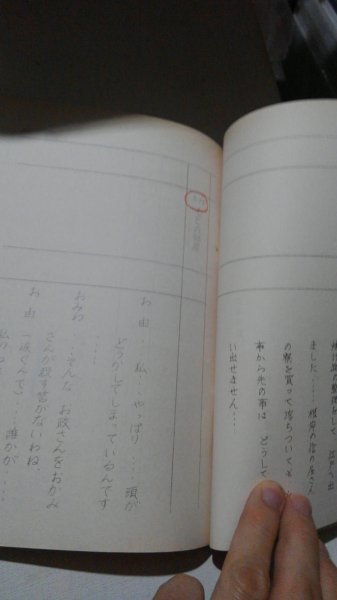 ました……根岸の
の寮を買って落ちつい
事から先の事は どうして
い出せません……
お由 私……やっぱり……頭が
どうかしてしまっているんです
……
おみね ……そんな お政さんをおかみ
さんが殺す筈がないわね
お由 (涙ぐんで)……誰かが……